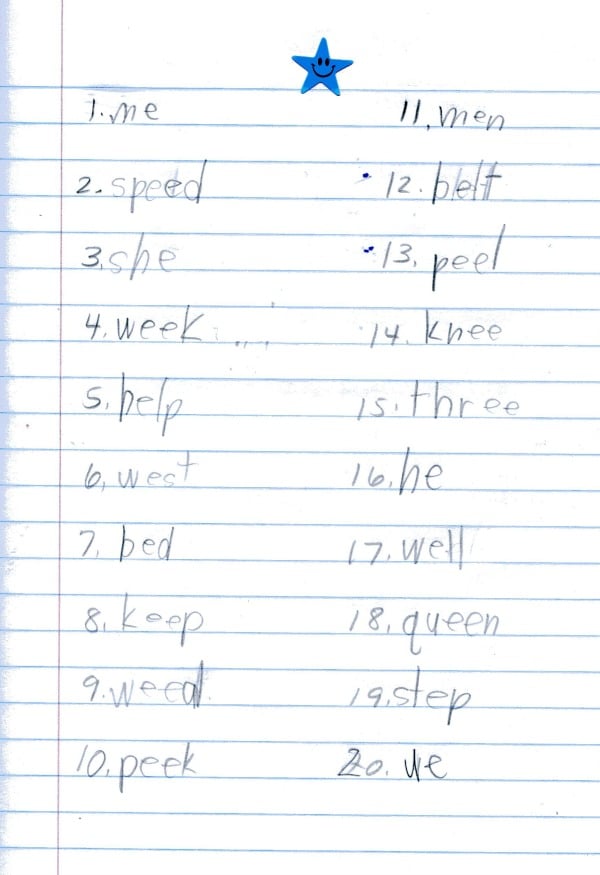 1. me
2. speed
3. she
4. week
5. help
6. west
7. bed
8. keep
9. weed
10. peek
11. men
12. belt
13. peel
14. knee
15. three
16. he
17. well
18. queen
19. step
20. we